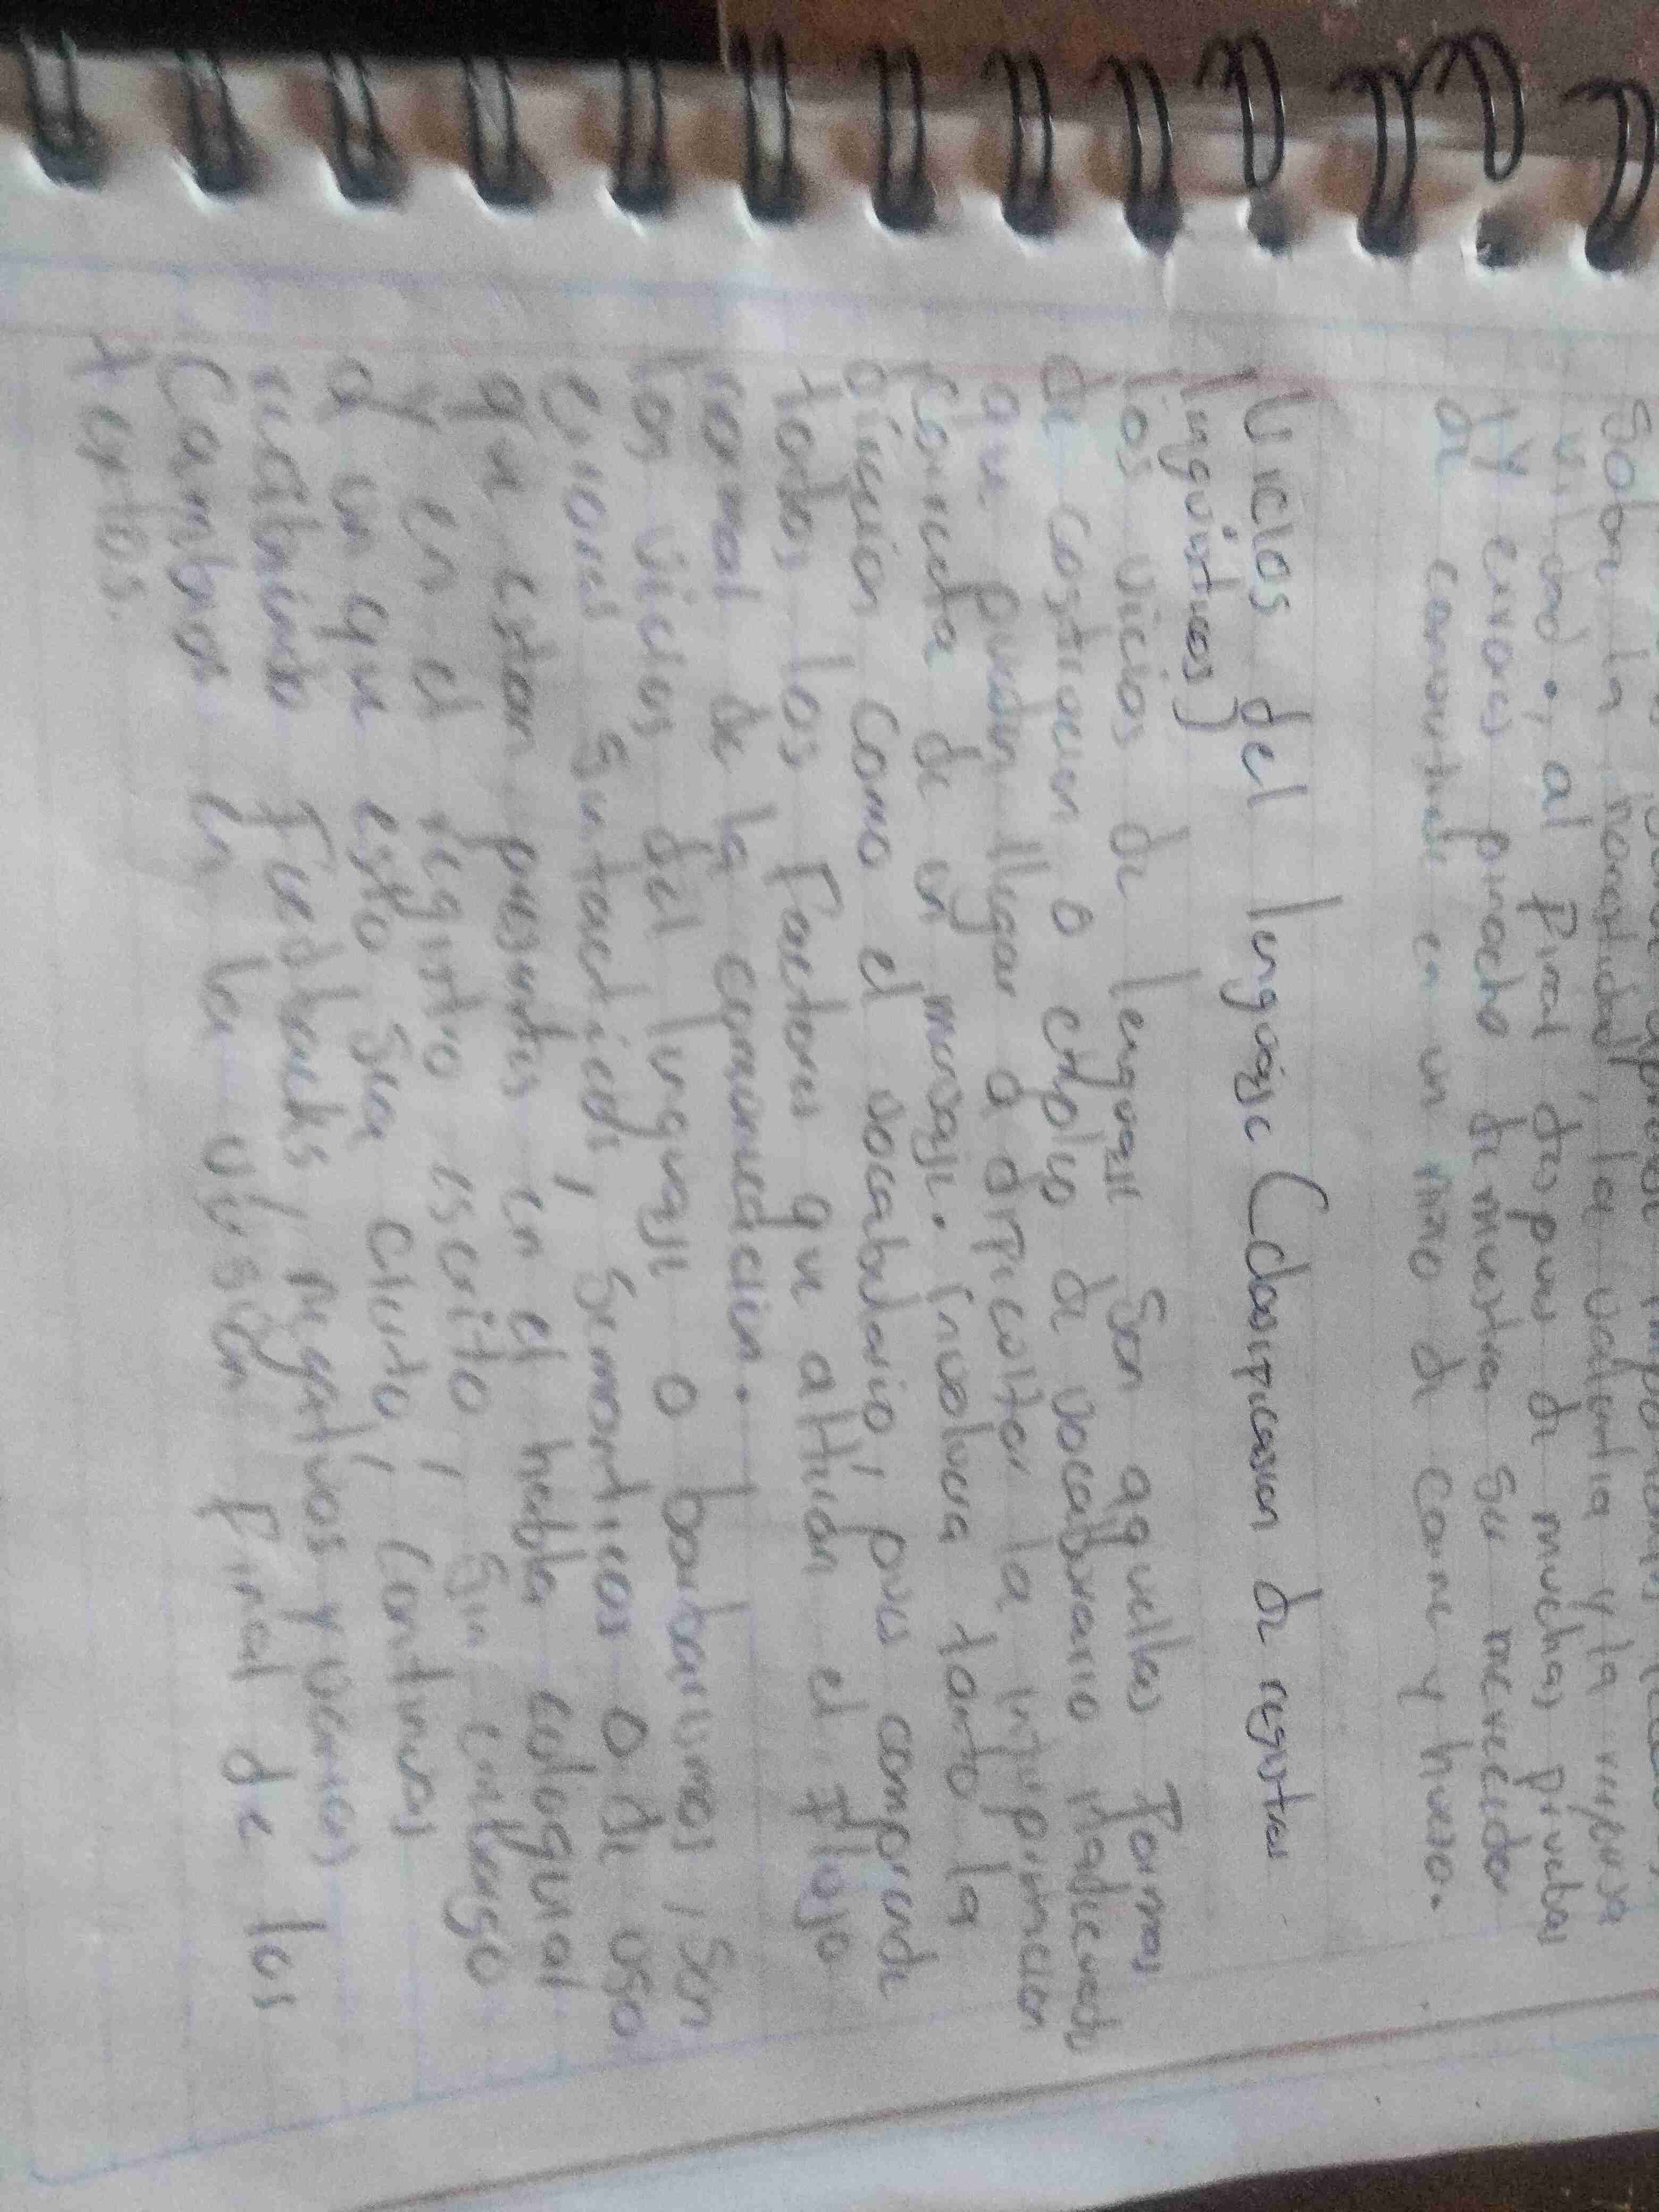 Sobre la honestidad, la valentia y la
vildad., al final despues de muchas pruebas
y errores pinocho demuestra su merecedor
de convertirse en un niño de carne y hueso.
Vicios del lenguaje (Clasificasion de registros
linguisticos)
los vicios de lenguaje son aquellas formas
de costruccion o empleo de vocaburario inadecuado
que pueden llegar a dificoltar la
correcta de un mensaje. Involucra tanto la
diccion como el vocabulario, pues comprende
todos los factores que alteran el flujo
normal de la comunicacion.
los vicios del lenguaje o barbarismos, son
errores sintacticos, semanticos o de uso
que estan presentes en el habla coloquial
y en el registro escrito, sin embargo
aunque esto sea cierto, continuas
recibiendo feedbacks negativos y
Cambios en la version final de los
textos.